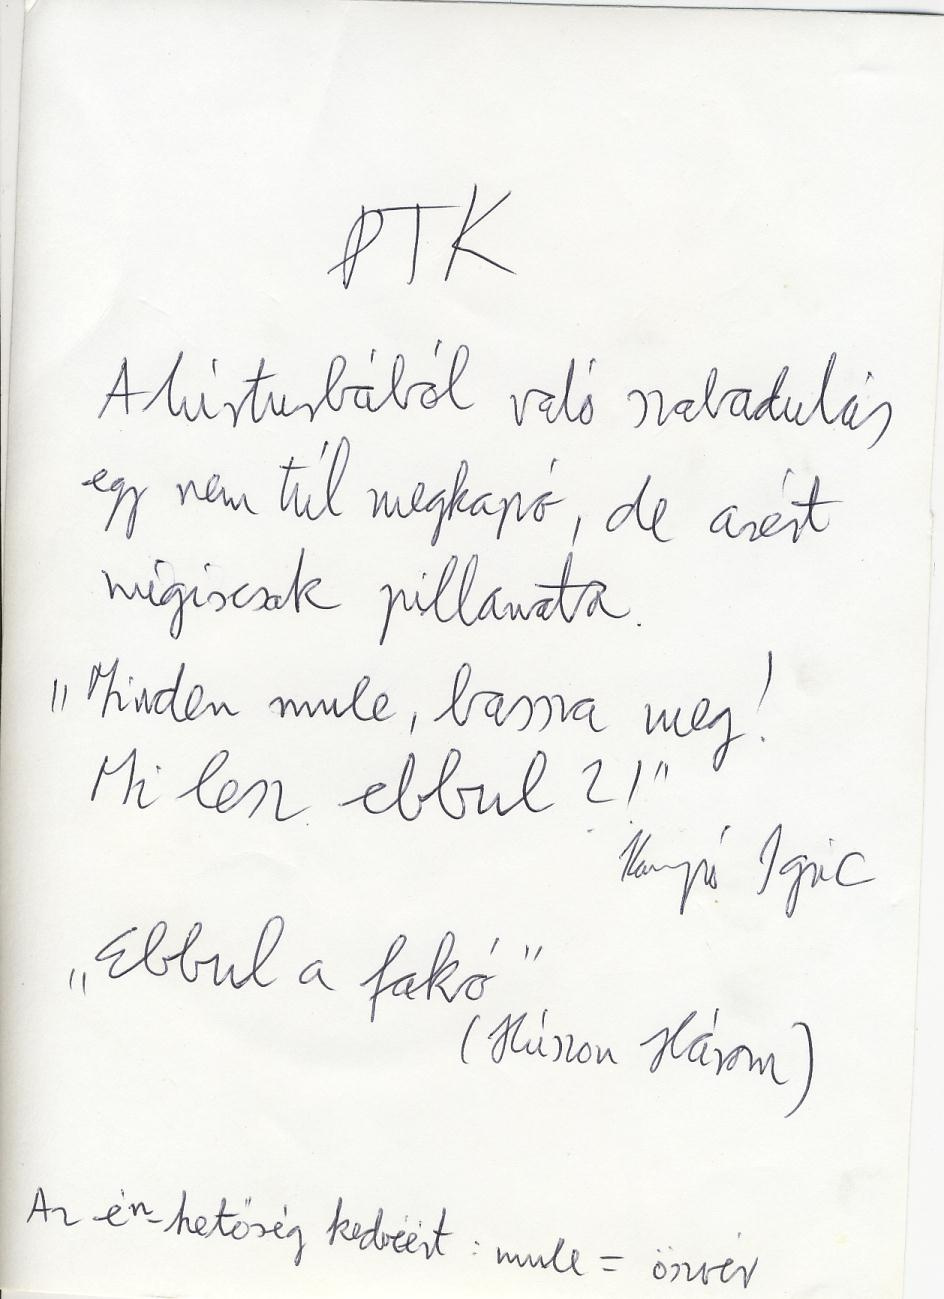 PTK
A hústusbából való szabadulás
egy nem túl megkapó, de azért
mégiscsak pillanata.
"Minden mule, bassza meg!
Mi lesz ebbul?!"
Igric
„Ebbul a fakó"
(Húszon Három)
Az én-hetőség kedvéért: mule = öszvér